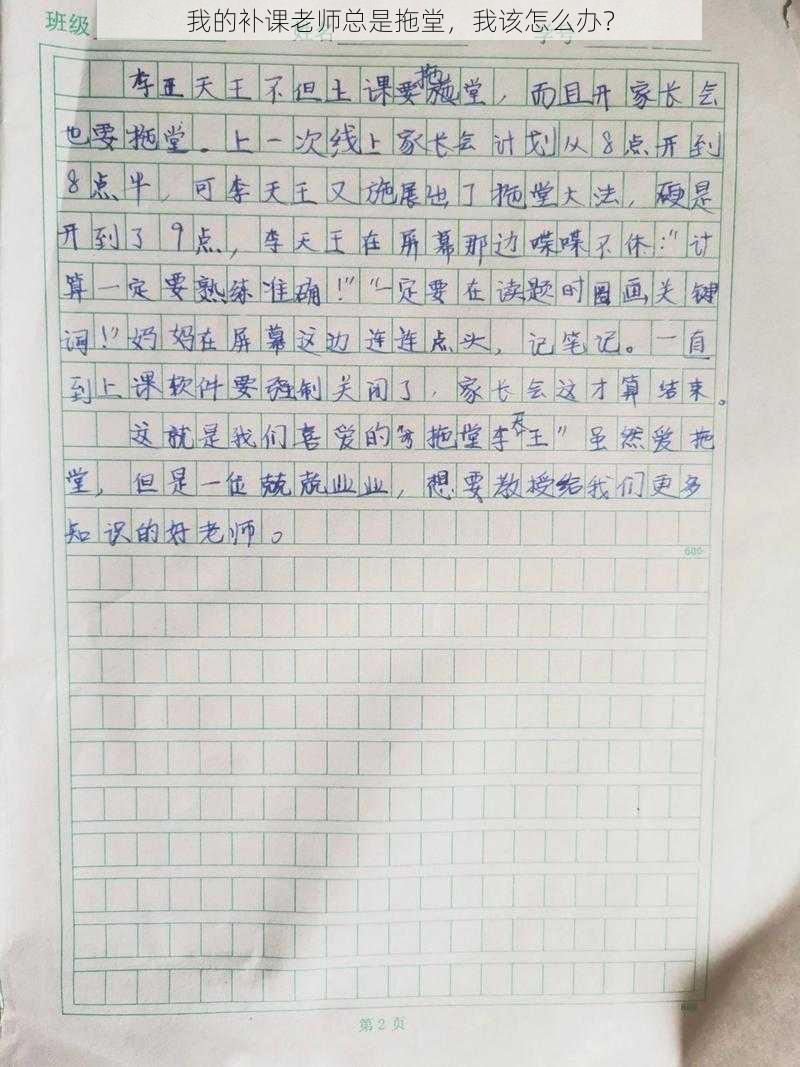 我的补课老师总是拖堂，我该怎么办？
班级
李天王不但上课要拖堂，而且开家长会
也要拖堂。上一次线上家长会计划从8点开到
8点半，可李天王又施展出了拖堂大法，硬是
开到了9点，李天王在屏幕那边喋喋不休："计
算一定要熟练准确！""一定要在读题时圈画关键
词！"妈妈在屏幕这边连连点头，记笔记。一直
到上课软件要强制关闭了，家长会这才算结束。
这就是我们喜爱的"拖堂李天王"虽然爱拖
堂，但是一位兢兢业业，想要教授给我们更多
知识的好老师。
600
第2页